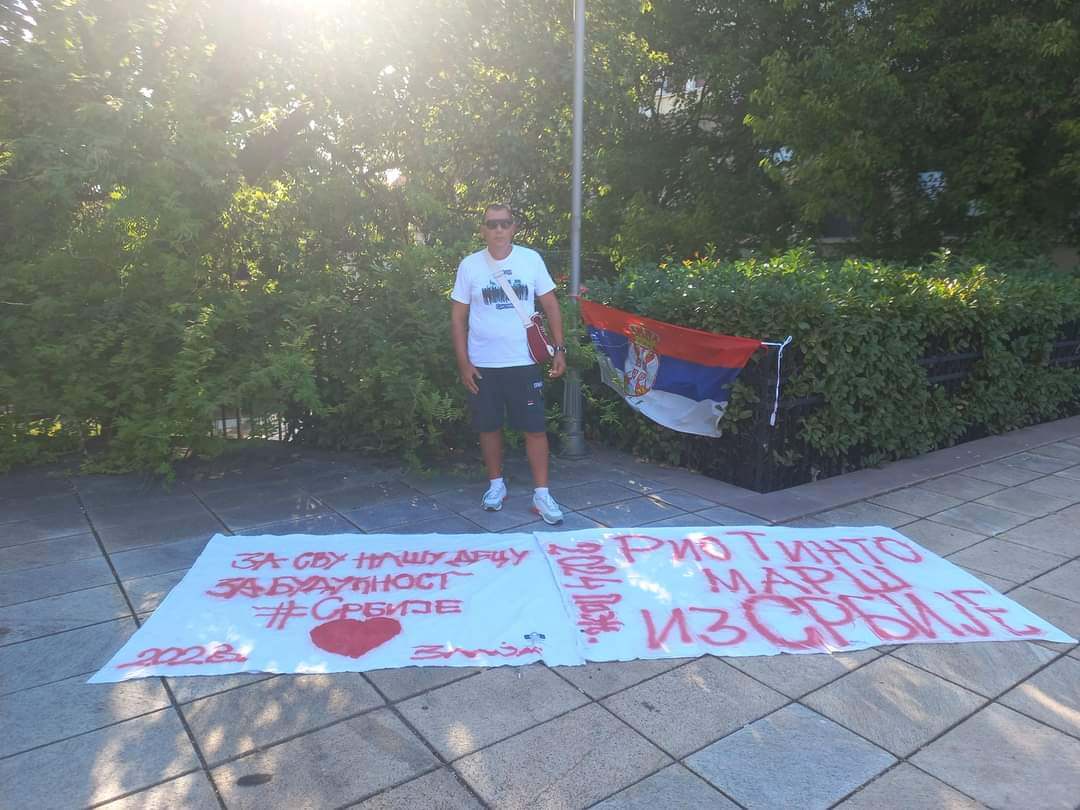 ЗА СВУ НАШУ ДЕЦУ
ЗА БУДУЋНОСТ
#СРБИЈЕ
2023.
2024
РИО ТИНТО
МАРШ
ИЗ СРБИЈЕ